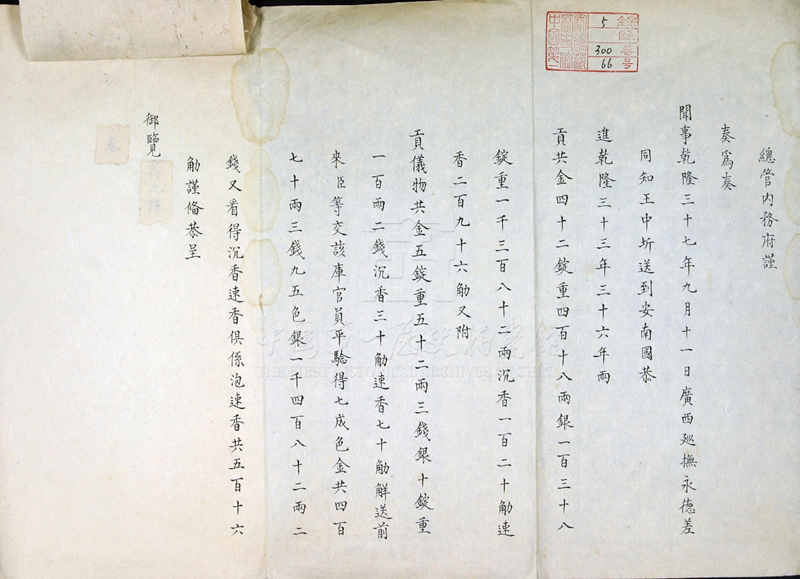 總管內務府謹
奏爲奏
聞事乾隆三十七年九月十一日廣西廵撫永德差
同知王中圻送到安南國恭
進乾隆三十三年三十六年兩
貢共金四十二錠重四百十八兩銀一百三十八
錠重一千三百八十二兩沉香一百二十觔速
香二百九十六觔又附
貢儀物共金五錠重五十二兩三錢銀十錠重
一百兩二錢沉香三十觔速香七十觔解送前
來臣等交該庫官員平驗得七成色金共四百
七十兩三錢九五色銀一千四百八十二兩二
錢又看得沉香速香俱係泡速香共五百十六
觔謹俻恭呈
御覽
5
300
66